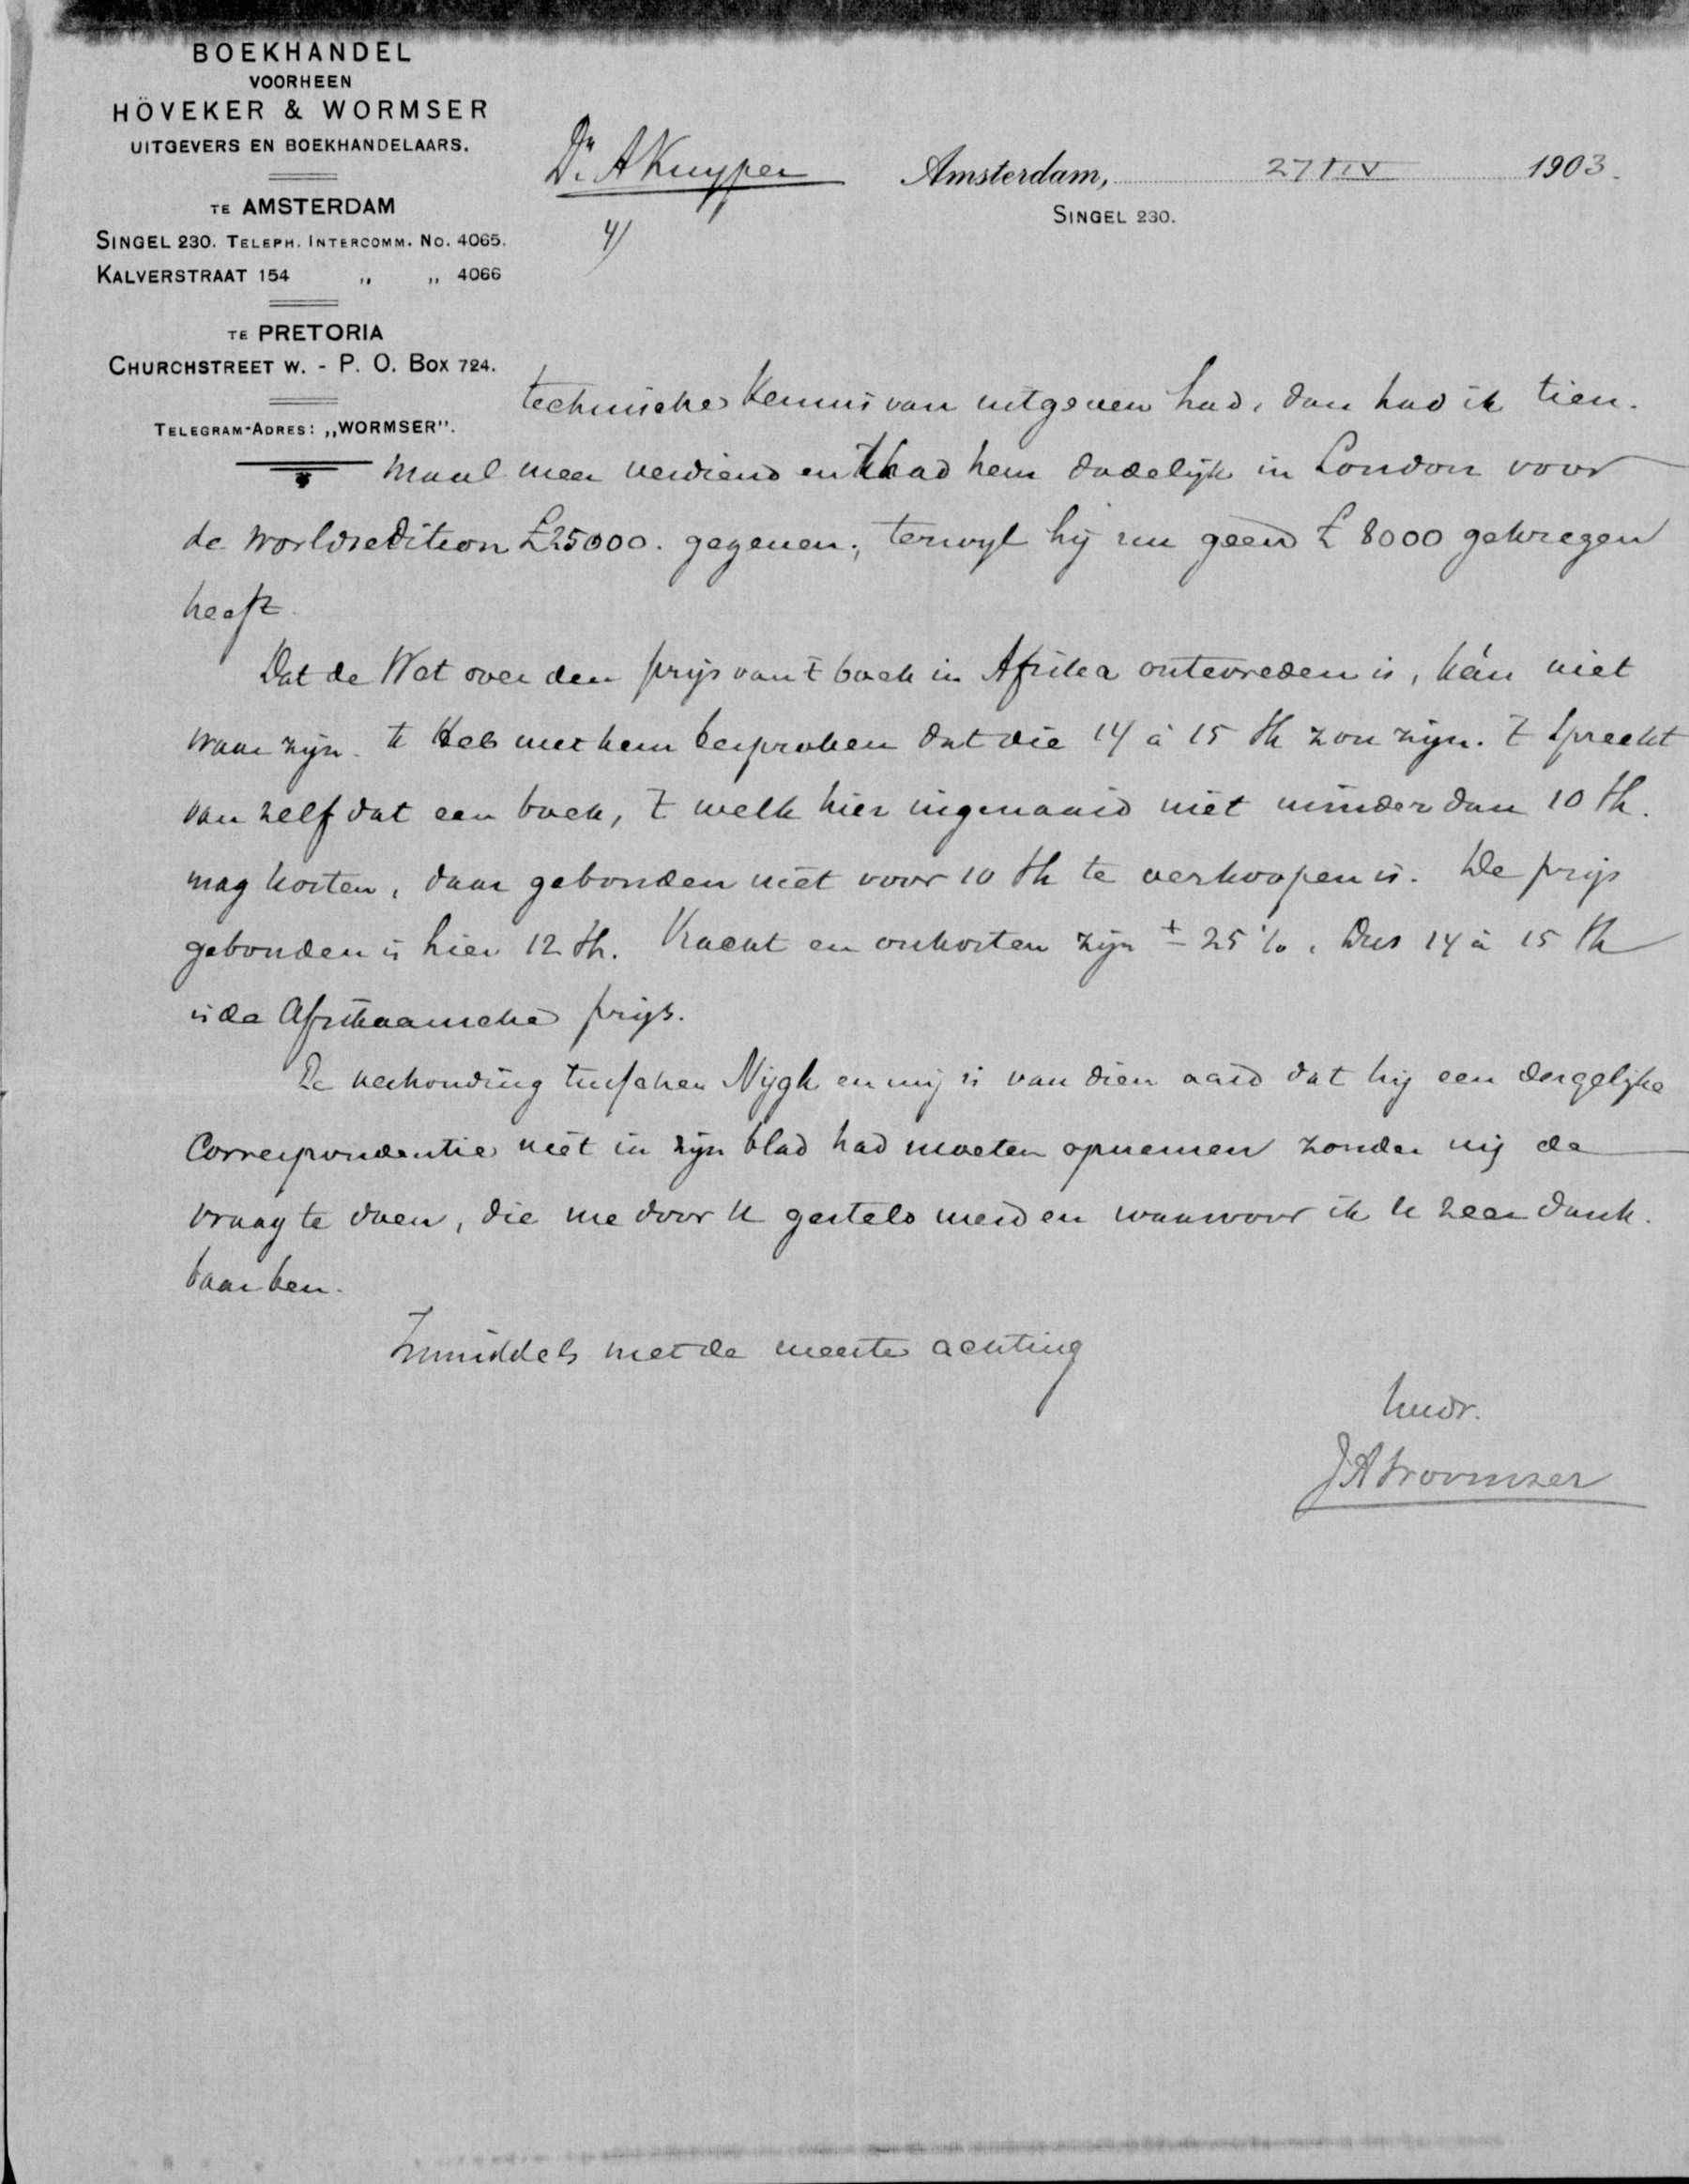 BOEKHANDEL
VOORHEEN
HÖVEKER & WORMSER
UITGEVERS EN BOEKHANDELAARS.
TE AMSTERDAM
SINGEL 230. TELEPH. INTERCOMM. No. 4065.
KALVERSTRAAT 154 „ „ 4066
TE PRETORIA
CHURCHSTREET W. - P. O. BOX 724.
TELEGRAM-ADRES: „WORMSER".
Dr A Kuyper
4)
Amsterdam, 27/IV 1903.
SINGEL 230.
technische kennis van uitgeven had, dan had ik tien-
maal meer verdiend en ik had hem dadelijk in London voor
de worldsedition £25000. gegeven; terwijl hij nu geen £ 8000 gekregen
heeft.
Dat de Wet over den prijs van 't boek in Afrika ontevreden is, kán niet
waar zijn. Ik heb met hem besproken dat die 14 à 15 sh zou zijn. 't Spreekt
van zelf dat een boek, 't welk hier ingenaaid niet minder dan 10 sh.
mag kosten, daar gebonden niet voor 10 sh te verkoopen is. De prijs
gebonden is hier 12 sh. Vracht en onkosten zijn ± 25 %. Dus 14 à 15 sh
is de Afrikaansche prijs.
De verhouding tusschen Nijgh en mij is van dien aard dat hij een dergelijke
Correspondentie niet in zijn blad had moeten opnemen zonder mij de
vraag te doen, die me door U gesteld werd en waarvoor ik U zeer dank-
baar ben.
Inmiddels met de meeste achting
Uwdr.
JA Wormser